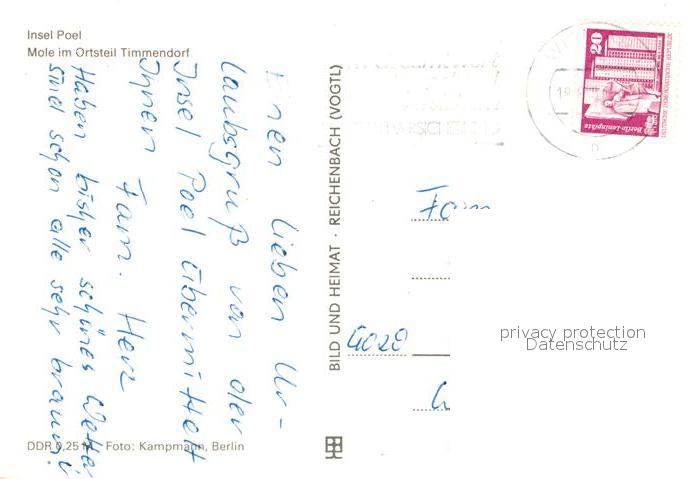 Insel Poel
Mole im Ortsteil Timmendorf
Einen lieben Ur-
laubsgruß von der
Insel Poel übermittelt
Ihnen Fam. Herz
Haben bisher schönes Wetter
sind schon alle sehr braun!
DDR 0,25 M Foto: Kampmann, Berlin
BILD UND HEIMAT · REICHENBACH (VOGTL)
20
Berlin-Leninplatz
Fam
4020
privacy protection
Datenschutz